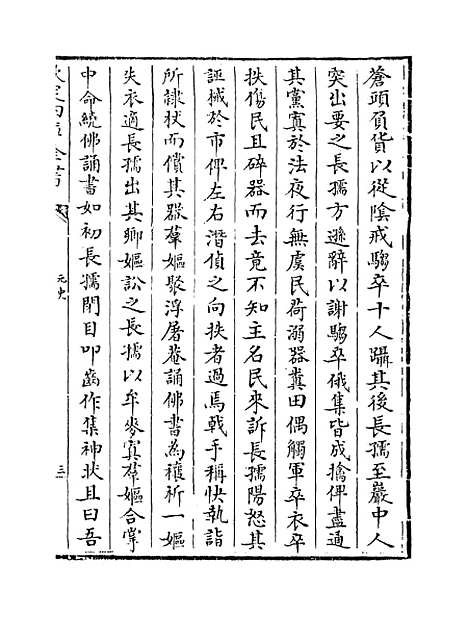 蒼頭負貨以從陰戒騶卒十人躡其後長孺至巖中人
突出要之長孺方遜辭以謝騶卒俄集皆成擒俾盡通
其黨寘於法夜行無虞民荷溺器糞田偶觸軍卒衣卒
抶傷民且碎器而去竟不知主名民來訴長孺陽怒其
誣械於市俾左右潛偵之向抶者過焉戟手稱快執詣
所隸杖而償其器羣嫗聚浮屠菴誦佛書為禳祈一嫗
失衣適長孺出其鄉嫗訟之長孺以牟麥寘羣嫗合掌
中命繞佛誦書如初長孺閉目叩齒作集神狀且曰吾
欽定四庫全書
元史
三